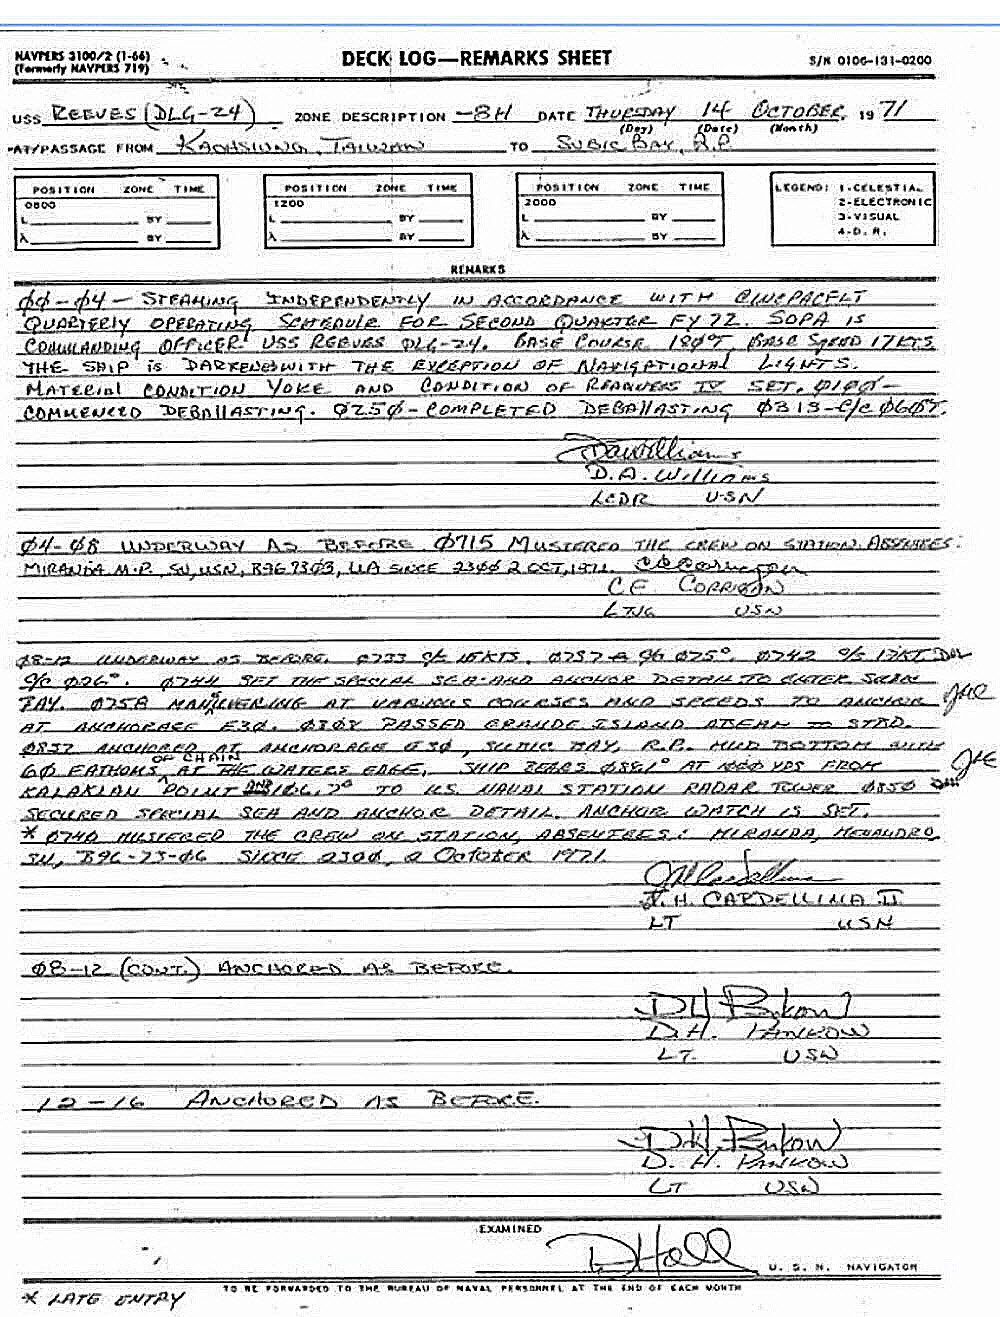 NAVPERS 3100/2 (1-66)
(Formerly NAVPERS 719)
DECK LOG—REMARKS SHEET
S/N 0106-131-0200
USS REEVES (DLG-24) ZONE DESCRIPTION -8H DATE THURSDAY 14 OCTOBER, 1971
(Day) (Date) (Month)
AT/PASSAGE FROM KAOHSIUNG, TAIWAN TO SUBIC BAY, R.P.
POSITION ZONE TIME
0800
L BY
λ BY
POSITION ZONE TIME
1200
L BY
λ BY
POSITION ZONE TIME
2000
L BY
λ BY
LEGEND: 1-CELESTIAL
2-ELECTRONIC
3-VISUAL
4-D. R.
REMARKS
00-04 - STEAMING INDEPENDENTLY IN ACCORDANCE WITH CINCPACFLT
QUARTERLY OPERATING SCHEDULE FOR SECOND QUARTER FY 72. SOPA IS
COMMANDING OFFICER USS REEVES DLG-24. BASE COURSE 180°T, BASE SPEED 17 KTS
THE SHIP IS DARKENED WITH THE EXCEPTION OF NAVIGATIONAL LIGHTS.
MATERIAL CONDITION YOKE AND CONDITION OF READINESS IV SET. 0100-
COMMENCED DEBALLASTING. 0250-COMPLETED DEBALLASTING 0313-C/C 060°T.
DaWilliams
D.A. WILLIAMS
LCDR USN
04-08 UNDERWAY AS BEFORE 0715 MUSTERED THE CREW ON STATION. ABSENTEES:
MIRANDA M.P., SN, USN, B96 7303, UA SINCE 2300 2 OCT, 1971. CE Corrigan
CE CORRIGAN
LTJG USN
08-12 UNDERWAY AS BEFORE. 0733 C/S 15 KTS. 0737 C/C 075°. 0742 C/S 17KT
C/C 026°. 0744 SET THE SPECIAL SEA AND ANCHOR DETAIL TO ENTER SUBIC
BAY. 0758 MANUVERING AT VARIOUS COURSES AND SPEEDS TO ANCHOR JHC
AT ANCHORAGE E30. 0808 PASSED GRANDE ISLAND ABEAM TO STBD.
0837 ANCHORED AT ANCHORAGE E30, SUBIC BAY, R.P. MUD BOTTOM WITH
60 FATHOMS OF CHAIN AT THE WATERS EDGE. SHIP BEARS 088.1° AT 1000 YDS FROM JHC
KALAKLAN POINT AND 106.7° TO U.S. NAVAL STATION RADAR TOWER 0850
SECURED SPECIAL SEA AND ANCHOR DETAIL. ANCHOR WATCH IS SET.
* 0740 MUSTERED THE CREW ON STATION, ABSENTEES: MIRANDA,
SN, B96-73-06 SINCE 2300, 2 OCTOBER 1971.
JH Cardellina
J. H. CARDELLINA II
LT USN
08-12 (CONT.) ANCHORED AS BEFORE.
DH Pankow
D.H. PANKOW
LT. USN
12-16 ANCHORED AS BEFORE.
DH Pankow
D. H. PANKOW
LT USN
EXAMINED
DHall
U. S. N. NAVIGATOR
TO BE FORWARDED TO THE BUREAU OF NAVAL PERSONNEL AT THE END OF EACH MONTH
* LATE ENTRY